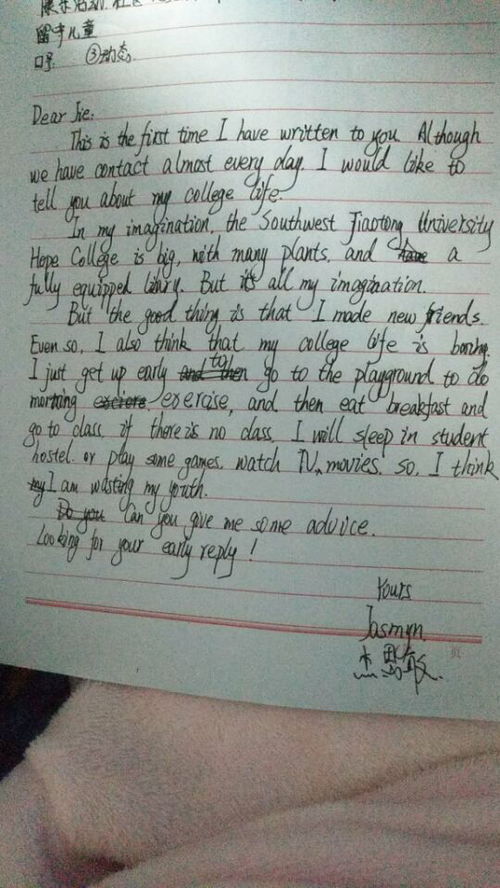 留守儿童
口号 ③动态
Dear Jie:
This is the first time I have written to you. Although
we have contact almost every day. I would like to
tell you about my college life.
In my imagination, the Southwest Jiaotong University
Hope College is big, with many plants, and a
fully equipped libiry. But it's all my imagination.
But the good thing is that I made new friends.
Even so, I also think that my college life is boring.
I just get up early and then to go to the playground to do
morning exercise, and then eat breakfast and
go to class. if there is no class. I will sleep in student
hostel. or play some games. watch TV, movies. so, I think
my I am wasting my youth.
Do you Can you give me some advice.
Looking for your early reply!
Yours
Jasmyn.
页